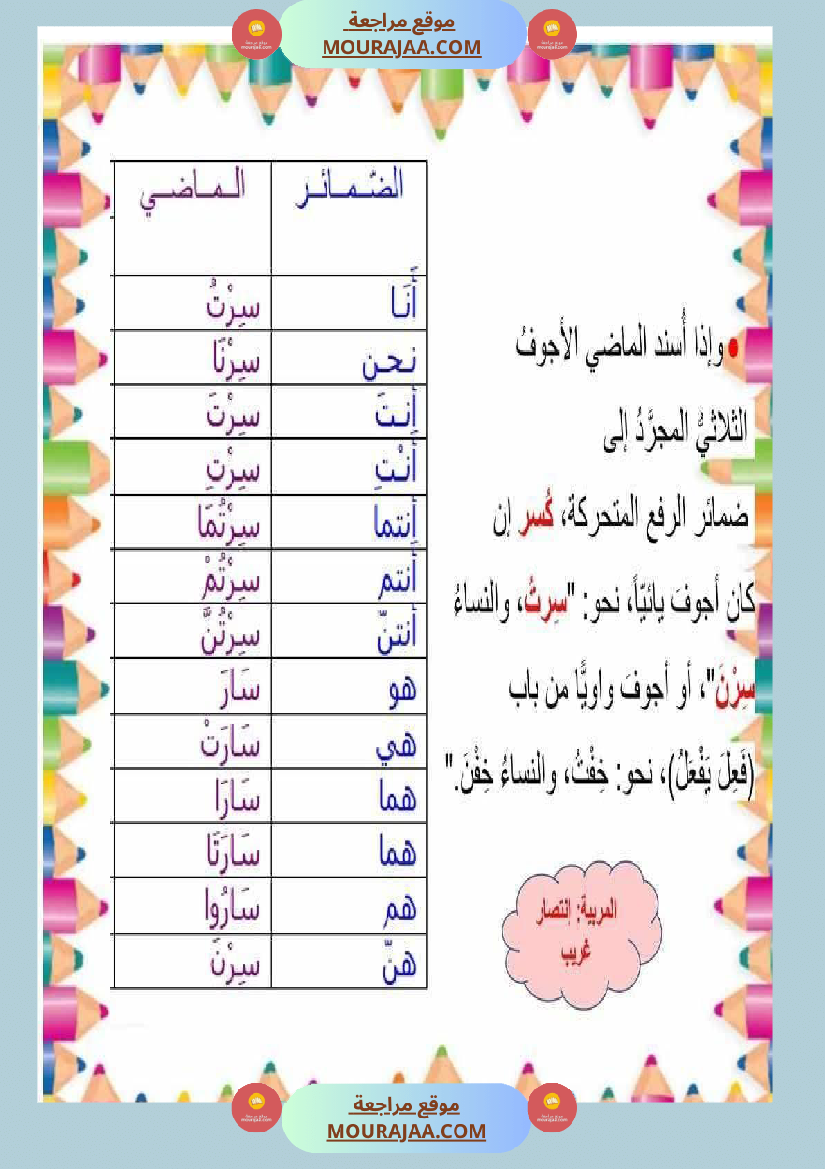 موقع مراجعة
MOURAJAA.COM
وإذا أُسند الماضي الأجوفُ
الثلاثيُّ المجرَّدُ إلى
ضمائر الرفع المتحركة، كُسر إن
كان أجوفَ يائيّاً، نحو: "سِرتُ، والنساءُ
سِرْنَ"، أو أجوفَ واويًّا من باب
(فَعِلَ يَفْعَلُ)، نحو: خِفْتُ، والنساءُ خِفْنَ."
المربية: إنتصار
غريب
الضّمائر الماضي
أَنَا سِرْتُ
نحن سِرْنَا
أنتَ سِرْتَ
أَنْتِ سِرْتِ
أنتما سِرْتُمَا
أنتم سِرْتُمْ
أنتنّ سِرْتُنَّ
هو سَارَ
هي سَارَتْ
هما سَارَا
هما سَارَتَا
هم سَارُوا
هنّ سِرْنَ
موقع مراجعة
MOURAJAA.COM